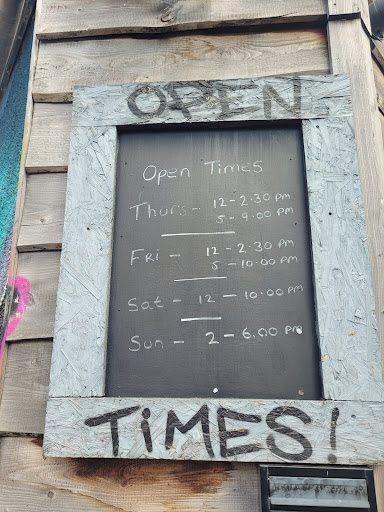 OPEN
Open Times
Thurs - 12 - 2.30 pm
5 - 9.00 pm
Fri - 12 - 2.30 pm
5 - 10.00 pm
Sat - 12 - 10.00 pm
Sun - 2 - 6.00 pm
TiMES!